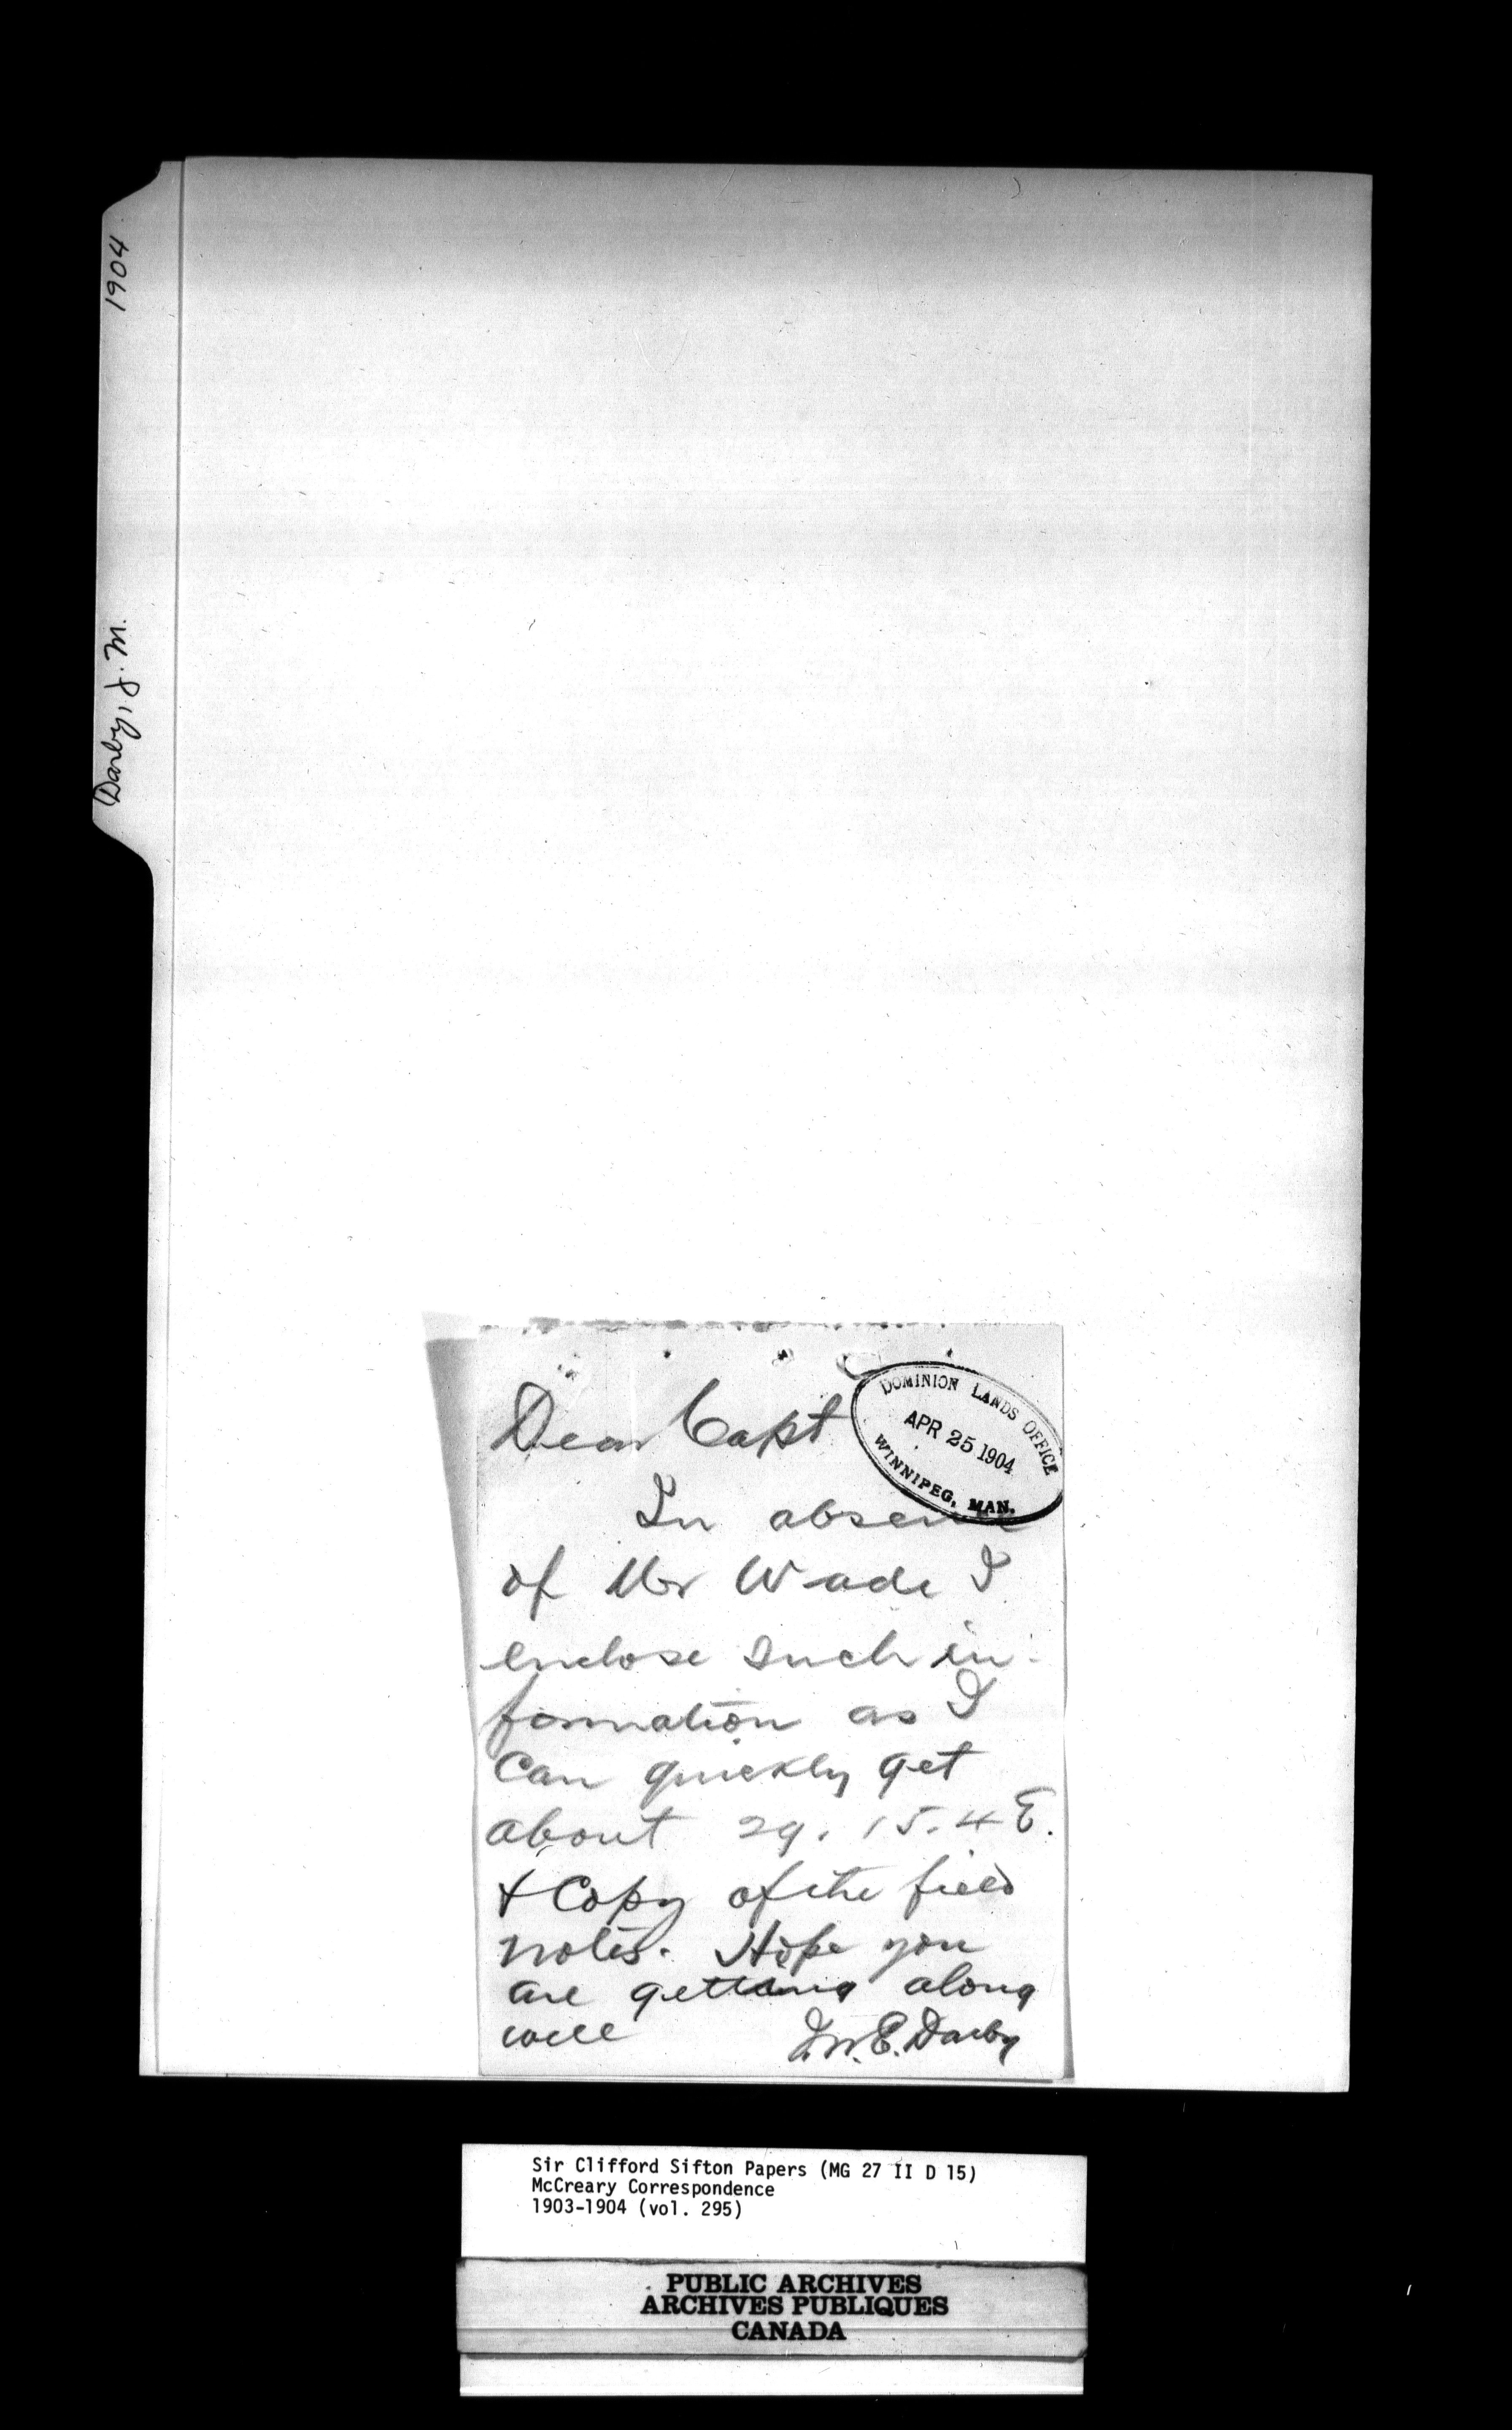 1904
Darby, J. M.
DOMINION LANDS OFFICE
APR 25 1904
WINNIPEG, MAN.
Dear Capt
In absence
of Mr Wade I
enclose such in-
formation as I
can quickly get
about 29. 15. 4 E.
& Copy of the field
notes. Hope you
are getting along
well J. M. E. Darby
Sir Clifford Sifton Papers (MG 27 II D 15)
McCreary Correspondence
1903-1904 (vol. 295)
PUBLIC ARCHIVES
ARCHIVES PUBLIQUES
CANADA